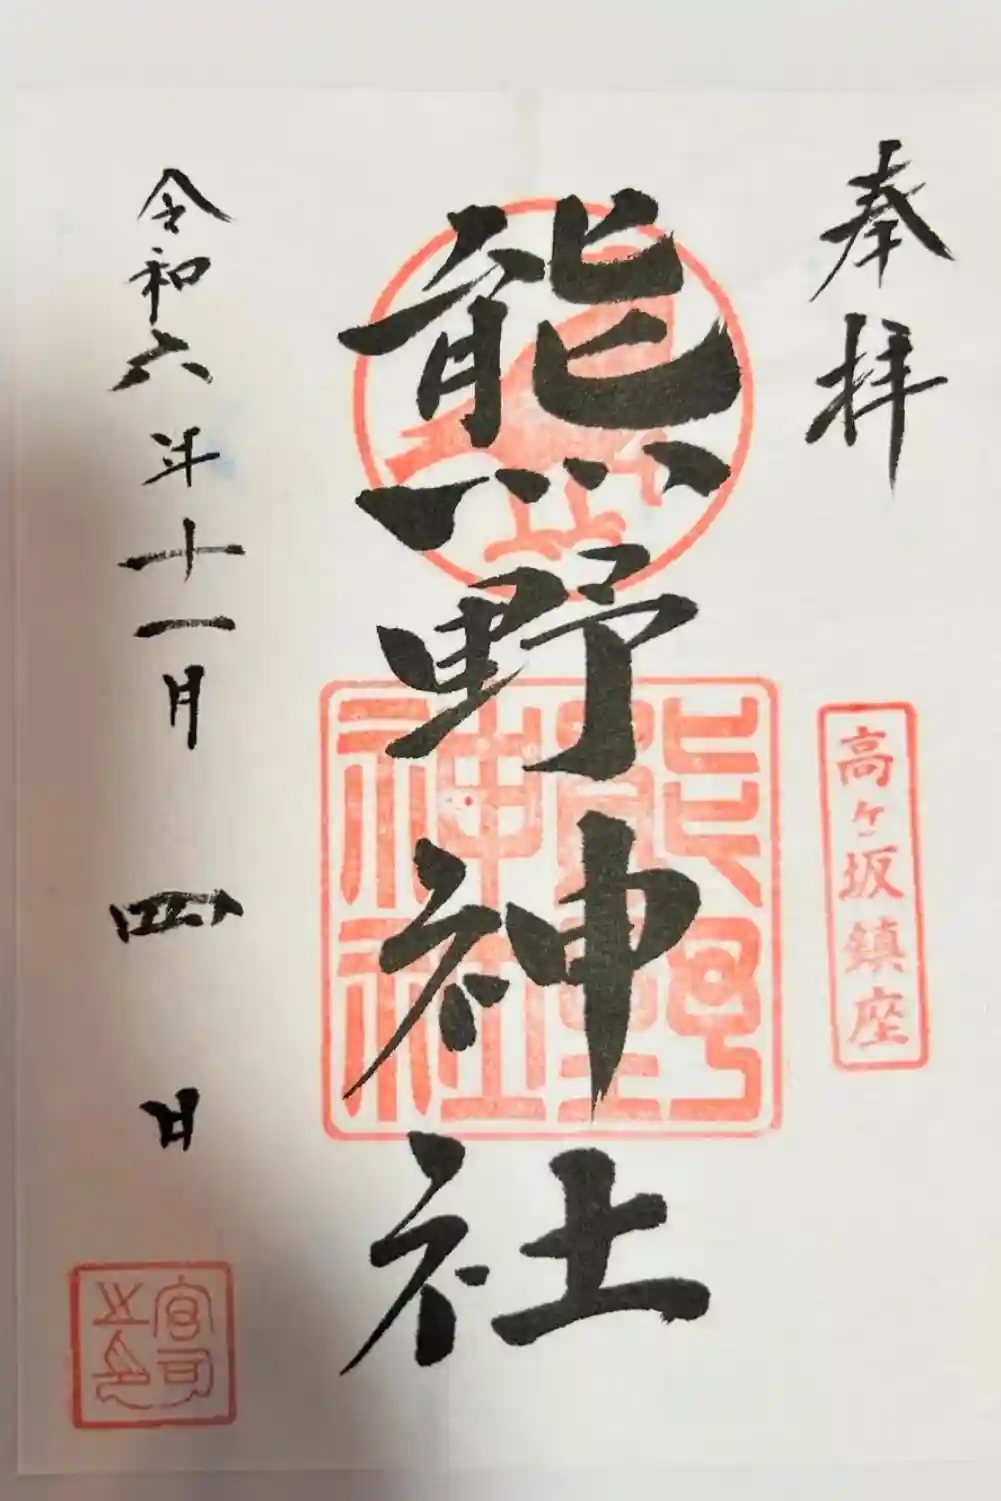 奉拝
高ヶ坂鎮座
熊野神社
熊野
神社
令和六年十一月四日
宮司
之印